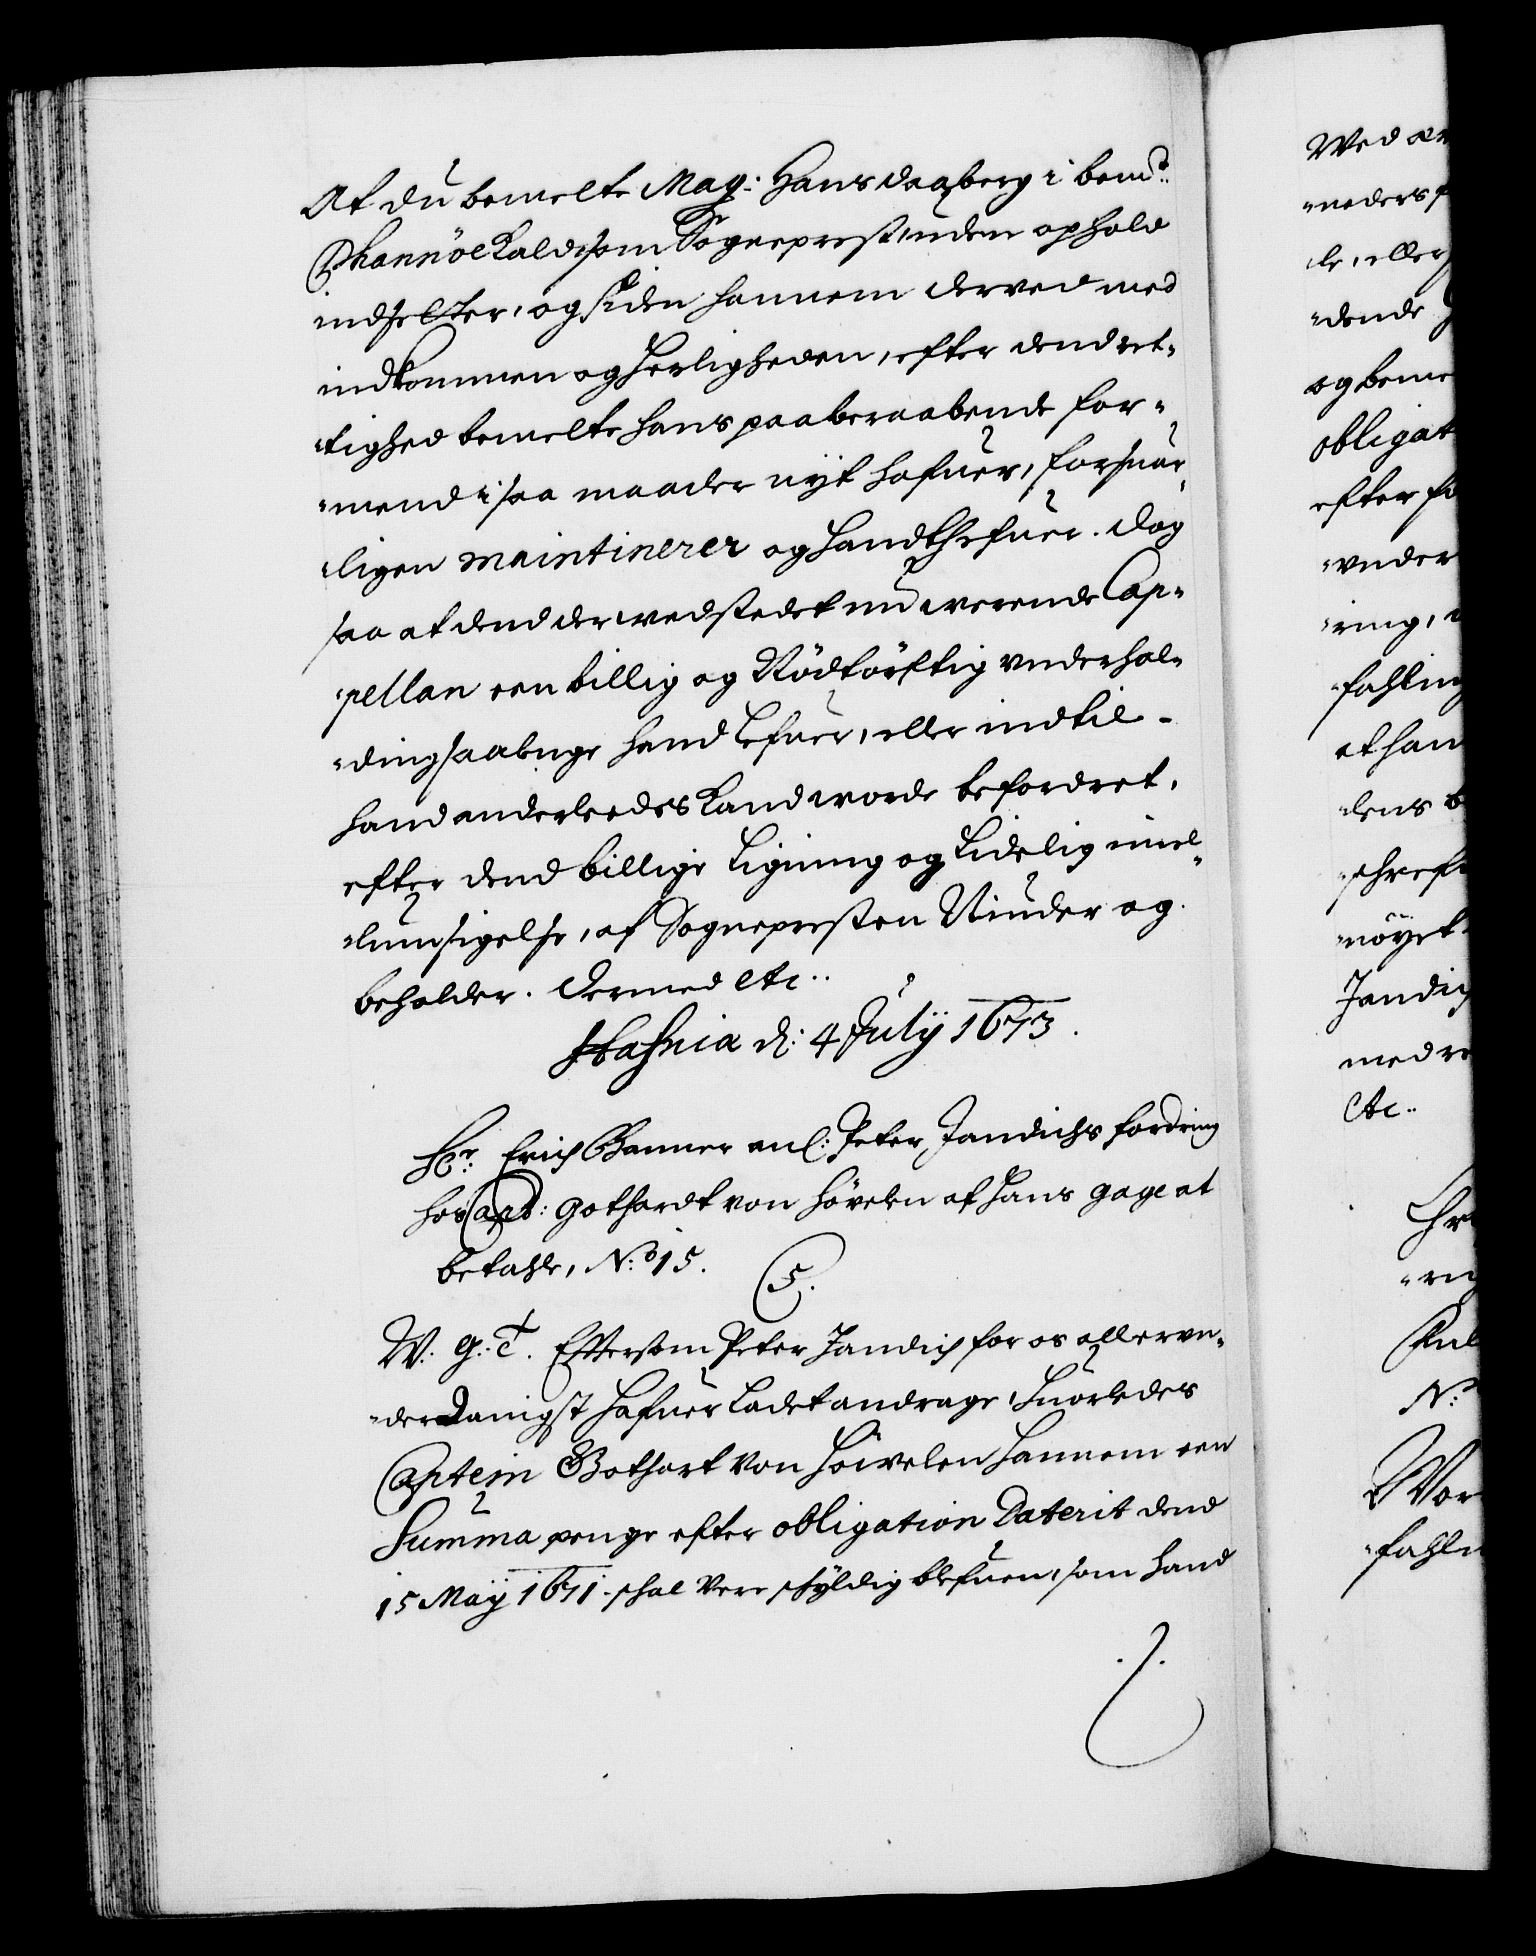 At du bemelte Mag: Hans Daaberg i bemt:
Thannöe Kald som Sogneprest, uden ophold
indsetter, og siden hannem derved med
indkommen og herligheden, efter dend ret-
-tighed bemelte hans paaberaabende for-
-mend i saa maader nÿt hafuer, forsuar-
-ligen maintinerer og handthefuer. Dog
saa at dend der wed stedet nu werende Cap-
-pellan een billig og Nödtörftig vnderhol-
-ding saalenge hand Lefuer, eller indtil
hand anderleedes Kand worde befordret,
efter dend billige Ligning og Lidelig
af Sognepresten Niuder og
beholder. Dermed etc..
Hafnia d: 4 Julÿ 1673.
Hr: Erich Banner anl: Peter Jandichs fordring
hos Capt: Gothardt von Hövelen af Hans gage at
betahle, N:o 15.
5.
W. G. T. Eftersom Peter Jandich for os allervn-
-derdanigst hafuer Ladet andrage, huorledes
Captein Gothart von Höwelen hannem een
Summa penge efter obligation Daterit dend
15 Maÿ 1671. skal Vere skÿldig blefuen, som hand
Wed
-neders
le, eller
-dende
og beme
obligat
efter
-vnder
-ring,
-fahling
at han
-dens
-nöyet
Jandich
med
etc..
N:o